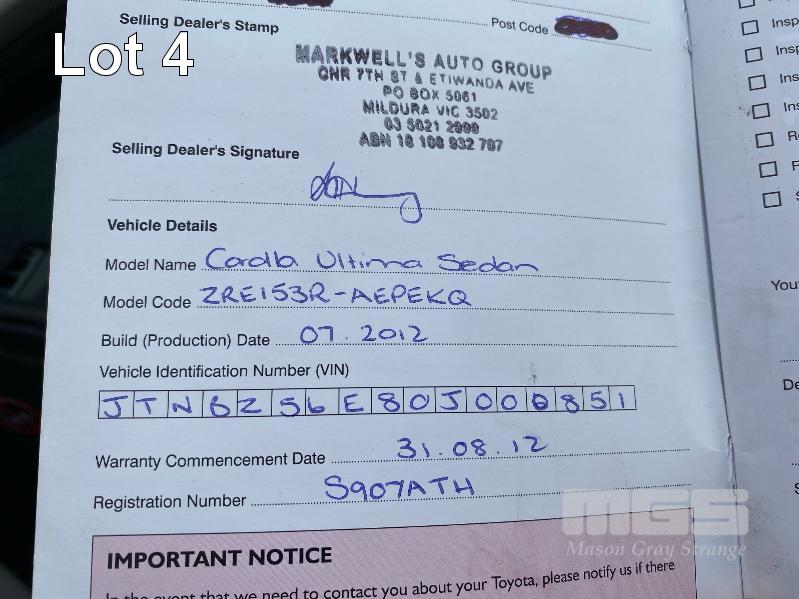 Lot 4
Selling Dealer's Stamp
Post Code
MARKWELL'S AUTO GROUP
CNR 7TH ST & ETIWANDA AVE
PO BOX 5061
MILDURA VIC 3502
03 5021 2999
ABN 18 108 932 707
Selling Dealer's Signature
Vehicle Details
Model Name Corolla Ultima Sedan
Model Code ZRE153R-AEPEKQ
Build (Production) Date 07.2012
Vehicle Identification Number (VIN)
JTNBZ56E80J000851
Warranty Commencement Date 31.08.12
Registration Number S907ATH
MGS
Mason Gray Strange
IMPORTANT NOTICE
In the event that we need to contact you about your Toyota, please notify us if there
Insp
Insp
Ins
Ins
R
You
De